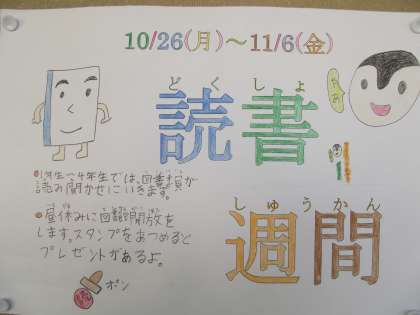 10/26(月)～11/6(金)
どくしょ
読書
しゅうかん
週間
●1年生～4年生では、図書委員が
読み聞かせにいきます。
●昼休みに図書館開放を
します。スタンプをあつめると
プレゼントがあるよ。
ポン